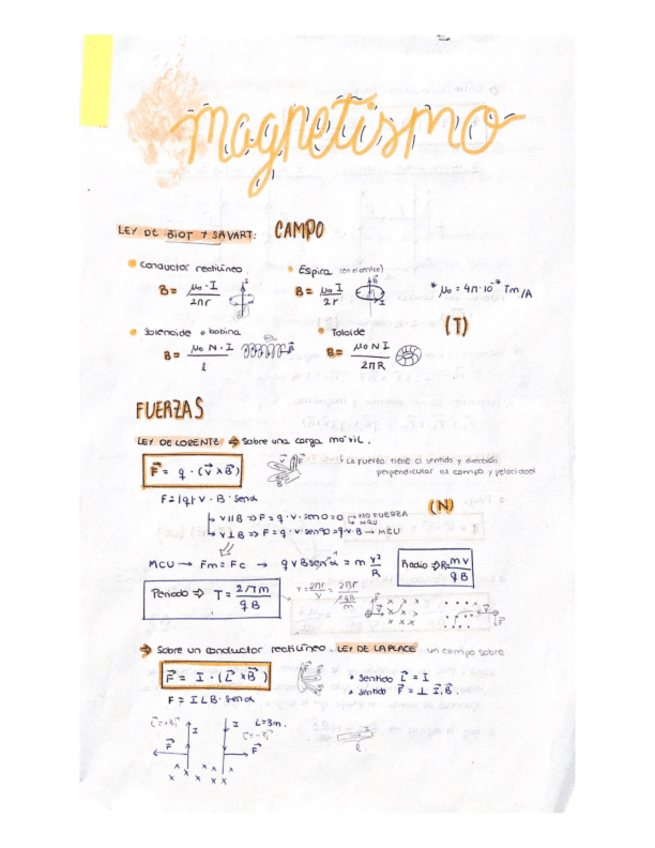 magnetismo
LEY DE BIOT Y SAVART: CAMPO
Conductor rectilíneo
Espira (en el centro)
B = μ₀·I / 2πr
B = μ₀ I / 2r
* μ₀ = 4π·10⁻⁷ Tm/A
Solenoide o bobina
Toloide
(T)
B = μ₀ N·I / l
B = μ₀ N I / 2πR
FUERZAS
LEY DE LORENTZ → Sobre una carga móvil.
F = q·(v x B)
* La fuerza tiene el sentido y dirección
perpendicular al campo y velocidad
F = |q|·v·B·senα
(N)
v∥B ⇒ F = q·v·sen0 = 0 → NO FUERZA
MRU
v⊥B ⇒ F = q·v·sen90 = q·v·B → MCU
MCU → Fm = Fc → qvBsenα = m v²/R
Radio ⇒ R = mv / qB
Periodo ⇒ T = 2πm / qB
→ Sobre un conductor rectilíneo. LEY DE LAPLACE un campo sobre
F = I·(L x B)
* Sentido L = I
* Sentido F = ⊥ I, B.
F = I L B·senα
I
I
L=3m.
F
F
l